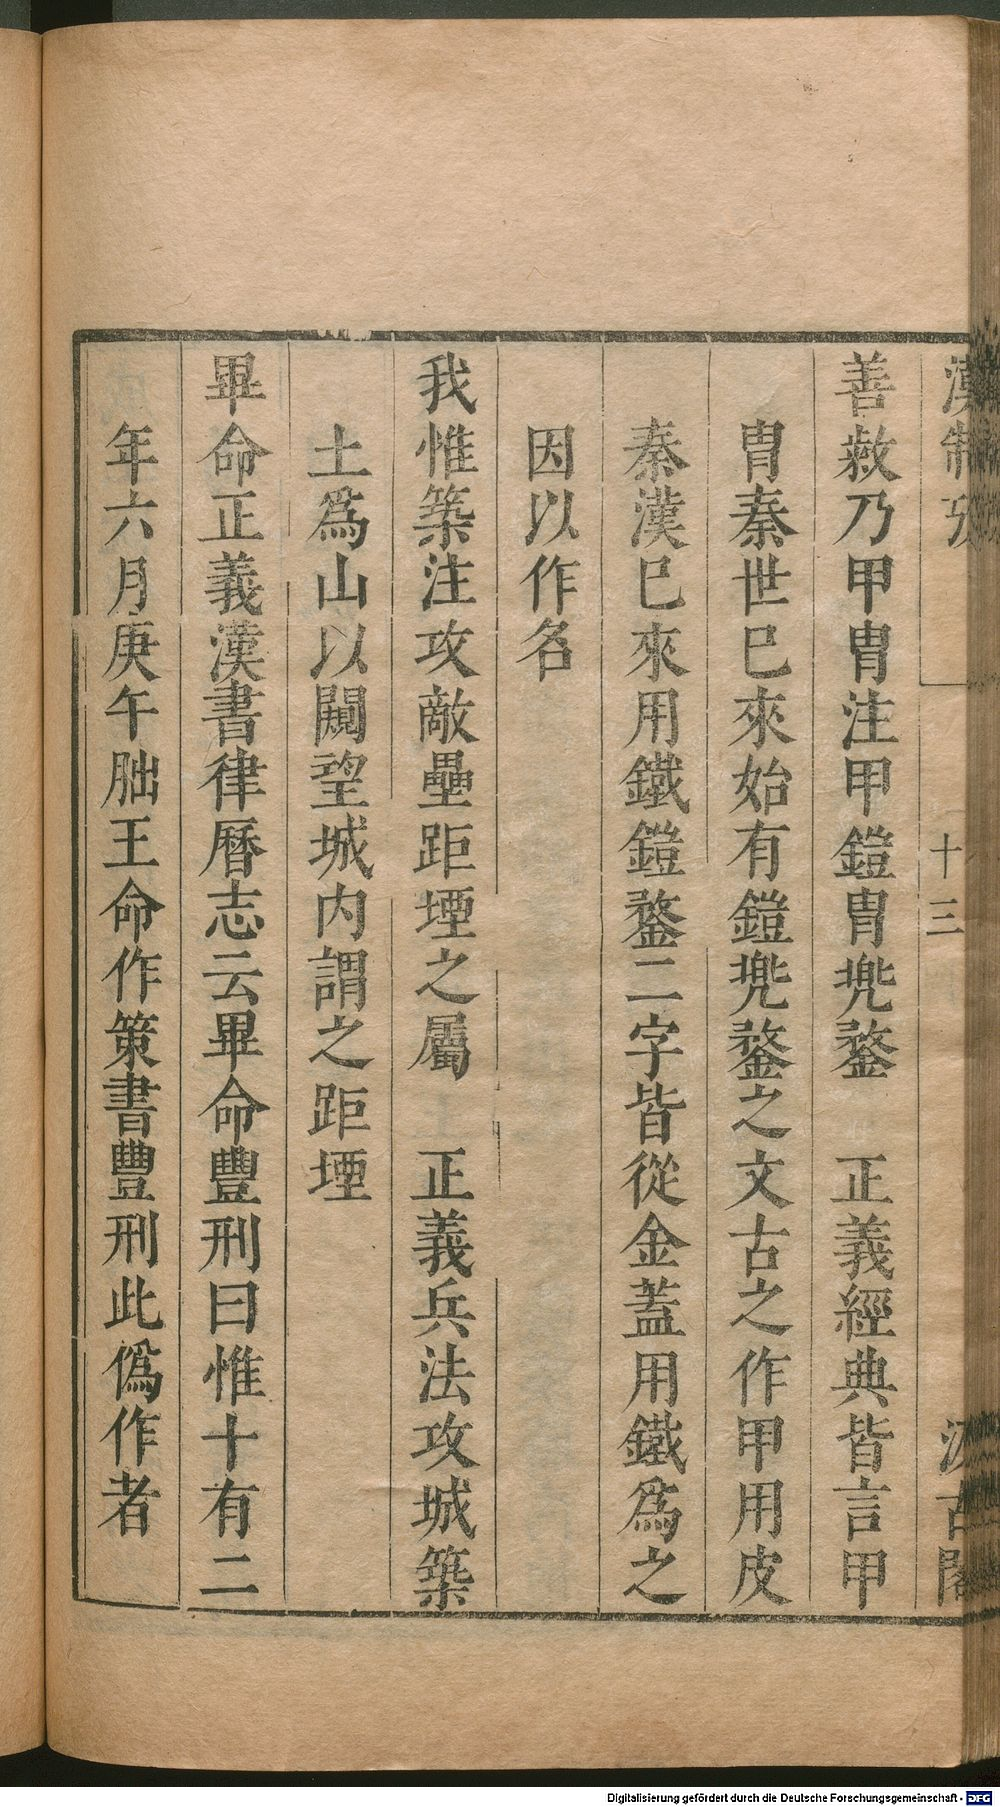 漢制攷
十三
汲古閣
善敹乃甲冑注甲鎧冑兠鍪　正義經典皆言甲
冑秦世巳來始有鎧兠鍪之文古之作甲用皮
秦漢巳來用鐵鎧鍪二字皆從金蓋用鐵爲之
因以作名
我惟築注攻敵壘距堙之屬　正義兵法攻城築
土爲山以闚望城内謂之距堙
畢命正義漢書律曆志云畢命豐刑曰惟十有二
年六月庚午朏王命作策書豐刑此僞作者
Digitalisierung gefördert durch die Deutsche Forschungsgemeinschaft - DFG